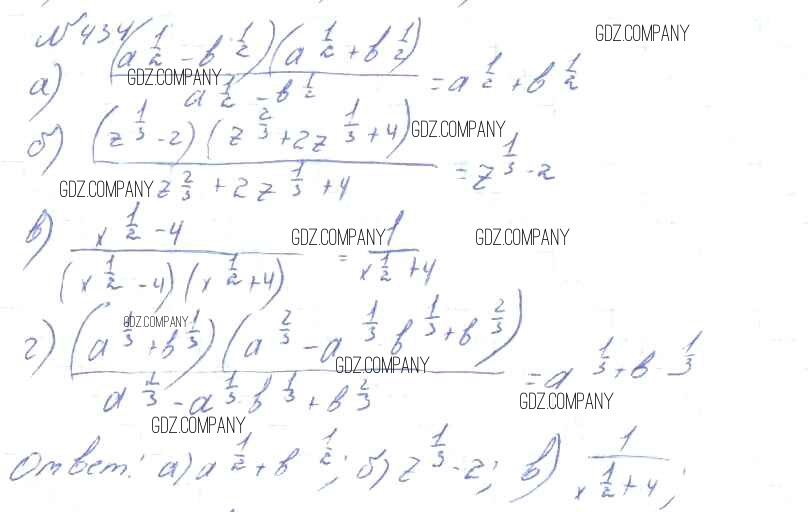 №434
GDZ.COMPANY
а) (a^{1/2} - b^{1/2})(a^{1/2} + b^{1/2}) / (a^{1/2} - b^{1/2}) = a^{1/2} + b^{1/2}
GDZ.COMPANY
б) (z^{1/3} - 2)(z^{2/3} + 2z^{1/3} + 4) / (z^{2/3} + 2z^{1/3} + 4) = z^{1/3} - 2
GDZ.COMPANY
GDZ.COMPANY
в) (x^{1/2} - 4) / ((x^{1/2} - 4)(x^{1/2} + 4)) = 1 / (x^{1/2} + 4)
GDZ.COMPANY GDZ.COMPANY
г) (a^{1/3} + b^{1/3})(a^{2/3} - a^{1/3} b^{1/3} + b^{2/3}) / (a^{2/3} - a^{1/3} b^{1/3} + b^{2/3}) = a^{1/3} + b^{1/3}
GDZ.COMPANY
GDZ.COMPANY
GDZ.COMPANY
GDZ.COMPANY
Ответ: а) a^{1/2} + b^{1/2}; б) z^{1/3} - 2; в) 1 / (x^{1/2} + 4);